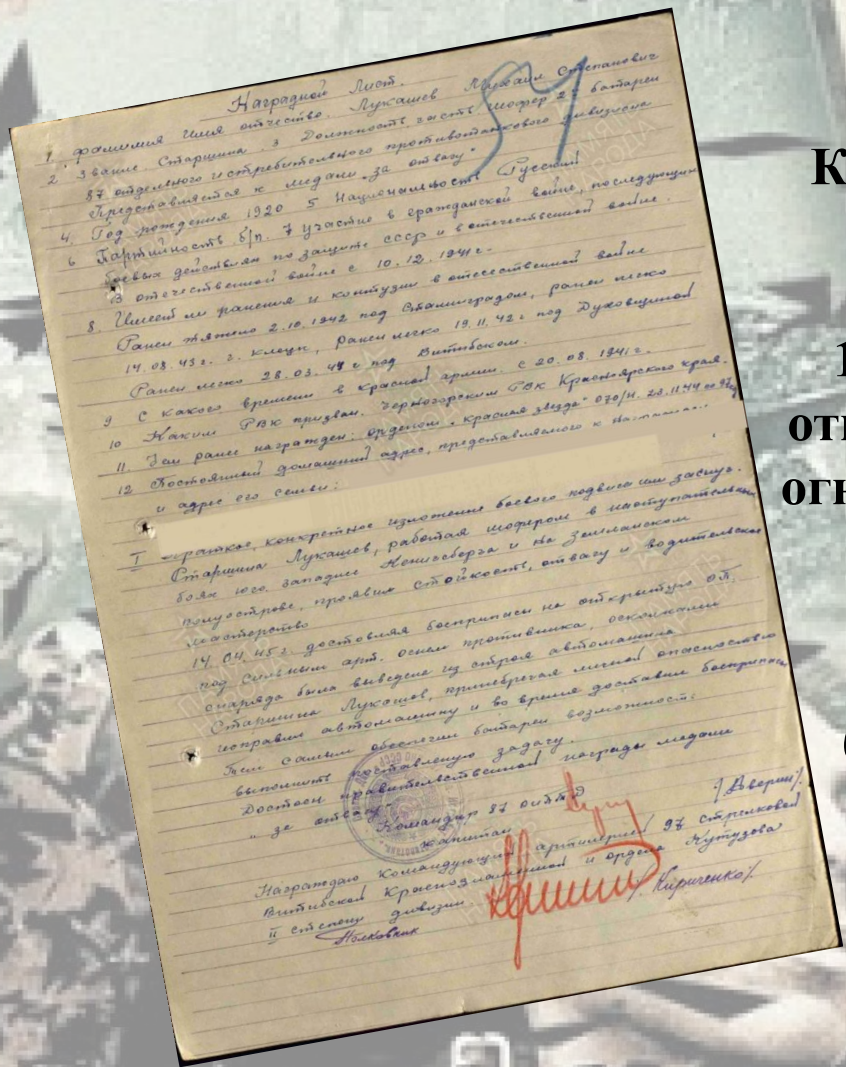 Наградной Лист.
1. фамилия имя отчество. Лукашев Михаил Степанович
2 Звание Старшина. 3 Должность, часть шофер 2й батареи
87 отдельного истребительного противотанкового дивизиона
Представляется к медали "за отвагу"
4. Год рождения 1920 5 Национальность Русский
6 Партийность б/п. 7 участие в гражданской войне, последующих
боевых действиях по защите ссср и в отечественной войне.
В отечественной войне с 10.12.1941 г.
8. Имеет ли ранения и контузии в отечественной войне
Ранен тяжело 2.10.1942 под Сталинградом, ранен легко
14.08.43 г. г. Клецк, ранен легко 19.11.42 г под Духовщиной
Ранен легко 28.03.44 г под Витибском.
9 С какого времени в красной армии. с 20.08.1941 г.
10 Каким РВК призван. Черногорским РВК Красноярского края.
11. Чем ранее награжден: орденом "красная звезда" 070/н. 23.11.44
12 Постоянный домашний адрес, представляемого к
и адрес его семьи:
I Краткое, конкретное изложение боевого подвига или заслуг.
Старшина Лукашев, работая шофером в наступательных
боях юго западнее Кенигсберга и на Земланском
полуострове, проявил стойкость, отвагу и водительское
мастерство
14.04.45 г. доставляя боеприпасы на открытую о.п.
под сильным арт. огнем противника, осколками
снаряда была выведена из строя автомашина
Старшина Лукашев, принебрегая личной опасностью
исправил автомашину и во время доставил боеприпасы
Тем самым обеспечил батареи возможность:
выполнить поставленую задачу.
Достоен правительственной награды медали
"за отвагу"
Командир 87 оиптд
капитан /Аверин/.
Награждаю Командующий артилерией 97 стрелковой
Витибской Краснознаменной и ордена Кутузова
II степени дивизии
Полковник /Кириченко/.
К
1
от
ог